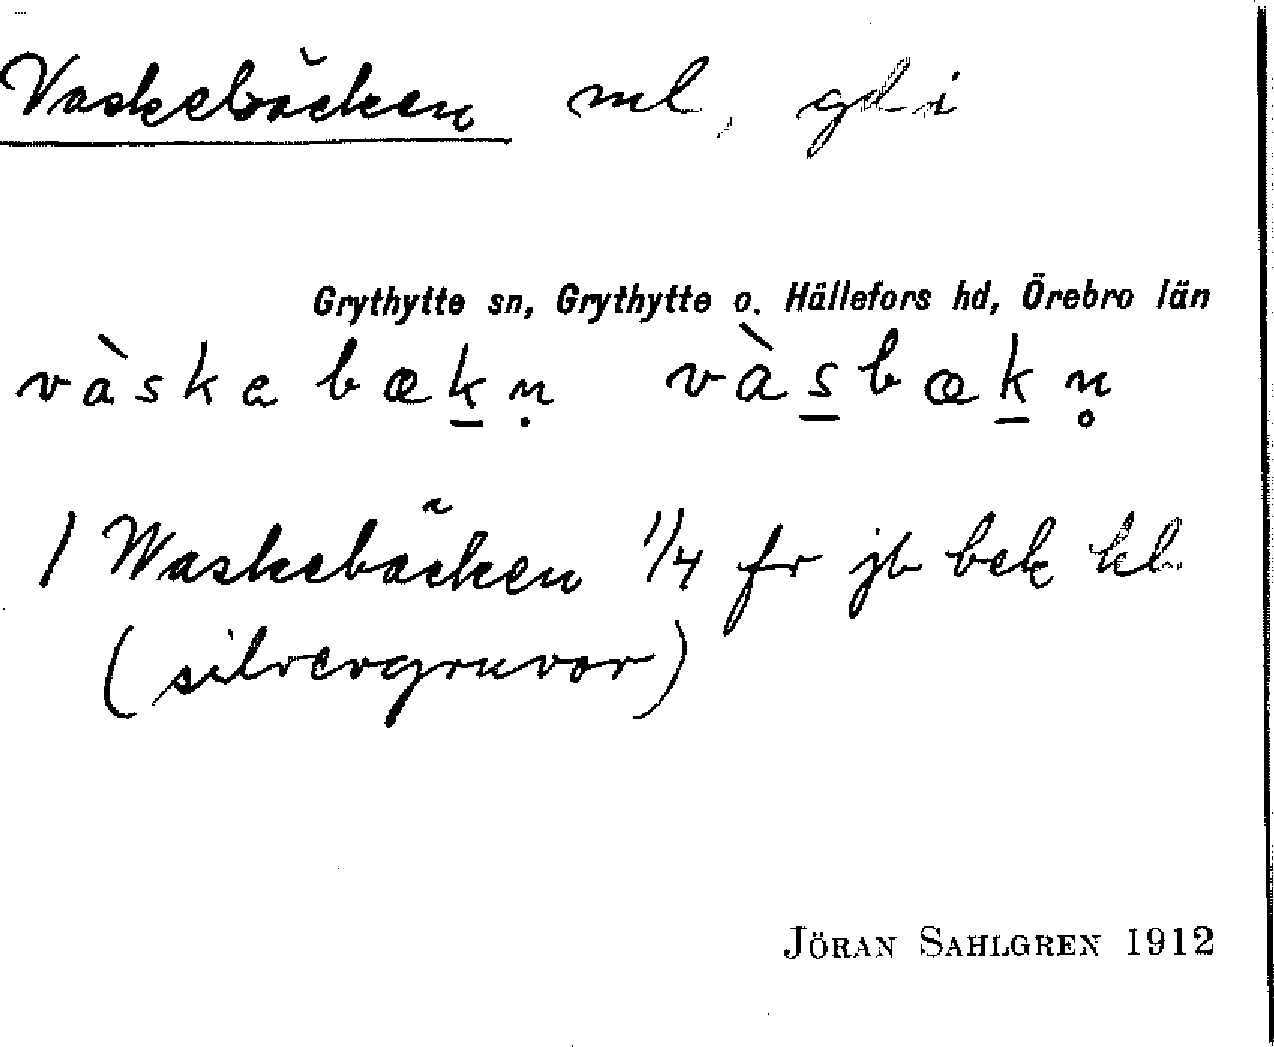 Vaskebäcken ml, gd i
Grythytte sn, Grythytte o. Hällefors hd, Örebro län
vàskabæḵṇ vàs̱bæḵn̥
1 Waskebäcken 1/4 fr jb bek kl.
(silvergruvor)
JÖRAN SAHLGREN 1912